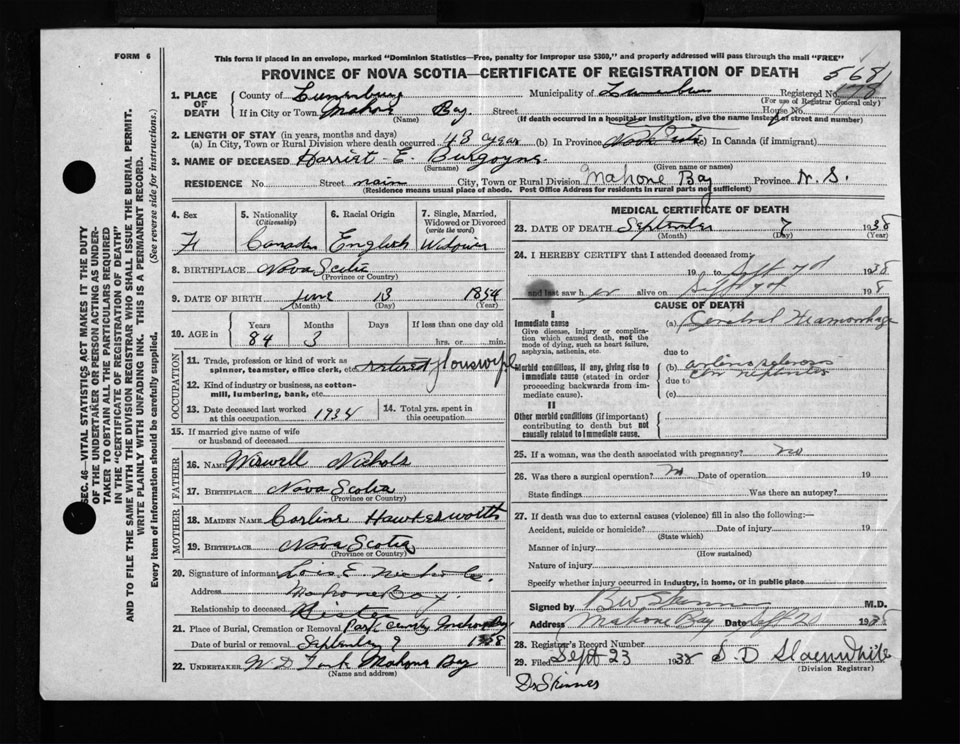 FORM 6
This form if placed in an envelope, marked "Dominion Statistics—Free, penalty for improper use $300," and properly addressed will pass through the mail "FREE"
PROVINCE OF NOVA SCOTIA—CERTIFICATE OF REGISTRATION OF DEATH
5681
1. PLACE OF DEATH
County of Lunenburg Municipality of Registered No. 178
(For use of Registrar General only)
If in City or Town Mahone Bay Street House No.
(Name) (If death occurred in a hospital or institution, give the name instead of street and number)
2. LENGTH OF STAY (in years, months and days)
(a) In City, Town or Rural Division where death occurred 48 year (b) In Province (c) In Canada (if immigrant)
3. NAME OF DECEASED Harriet E. Burgoyne
(Surname) (Given name or names)
RESIDENCE No. Street main City, Town or Rural Division Mahone Bay Province N. S.
(Residence means usual place of abode. Post Office Address for residents in rural parts not sufficient)
4. Sex
5. Nationality (Citizenship)
6. Racial Origin
7. Single, Married, Widowed or Divorced (write the word)
F Canadian English Widower
8. BIRTHPLACE Nova Scotia
(Province or Country)
9. DATE OF BIRTH June 13 1854
(Month) (Day) (Year)
10. AGE in Years Months Days If less than one day old
84 3 hrs. or min.
OCCUPATION
11. Trade, profession or kind of work as spinner, teamster, office clerk, etc. retired Housewife
12. Kind of industry or business, as cotton-mill, lumbering, bank, etc.
13. Date deceased last worked at this occupation 1934
14. Total yrs. spent in this occupation
15. If married give name of wife or husband of deceased
FATHER
16. NAME Wiswell Nichols
17. BIRTHPLACE Nova Scotia
(Province or Country)
MOTHER
18. MAIDEN NAME Carline Hawkesworth
19. BIRTHPLACE Nova Scotia
(Province or Country)
20. Signature of informant Lois E. Nichols
Address Mahone Bay
Relationship to deceased Sister
21. Place of Burial, Cremation or Removal Park Mahone Bay
Date of burial or removal September 9 1938
22. UNDERTAKER W D Mahone Bay
(Name and address)
MEDICAL CERTIFICATE OF DEATH
23. DATE OF DEATH September 7 1938
(Month) (Day) (Year)
24. I HEREBY CERTIFY that I attended deceased from
19 to Sept 7th 1938
and last saw her alive on Sept 7th 1938
CAUSE OF DEATH
I
Immediate cause
Give disease, injury or complication which caused death, not the mode of dying, such as heart failure, asphyxia, asthenia, etc.
(a) Cerebral Heamorrhage
due to
Morbid conditions, if any, giving rise to immediate cause (stated in order proceeding backwards from immediate cause).
(b)
due to
(c)
II
Other morbid conditions (if important) contributing to death but not causally related to immediate cause.
25. If a woman, was the death associated with pregnancy? no
26. Was there a surgical operation? no Date of operation 19
State findings Was there an autopsy?
27. If death was due to external causes (violence) fill in also the following:—
Accident, suicide or homicide? Date of injury 19
(State which)
Manner of injury
(How sustained)
Nature of injury
Specify whether injury occurred in industry, in home, or in public place
Signed by B W Skinner M.D.
Address Mahone Bay Date Sept 20 1938
28. Registrar's Record Number
29. Filed Sept 23 1938 S. D
(Division Registrar)
Dr Skinner
SEC. 46—VITAL STATISTICS ACT MAKES IT THE DUTY
OF THE UNDERTAKER OR PERSON ACTING AS UNDER-
TAKER TO OBTAIN ALL THE PARTICULARS REQUIRED
IN THE "CERTIFICATE OF REGISTRATION OF DEATH"
AND TO FILE THE SAME WITH THE DIVISION REGISTRAR WHO SHALL ISSUE THE BURIAL PERMIT.
WRITE PLAINLY WITH UNFADING INK. THIS IS A PERMANENT RECORD.
Every item of information should be carefully supplied. (See reverse side for instructions.)